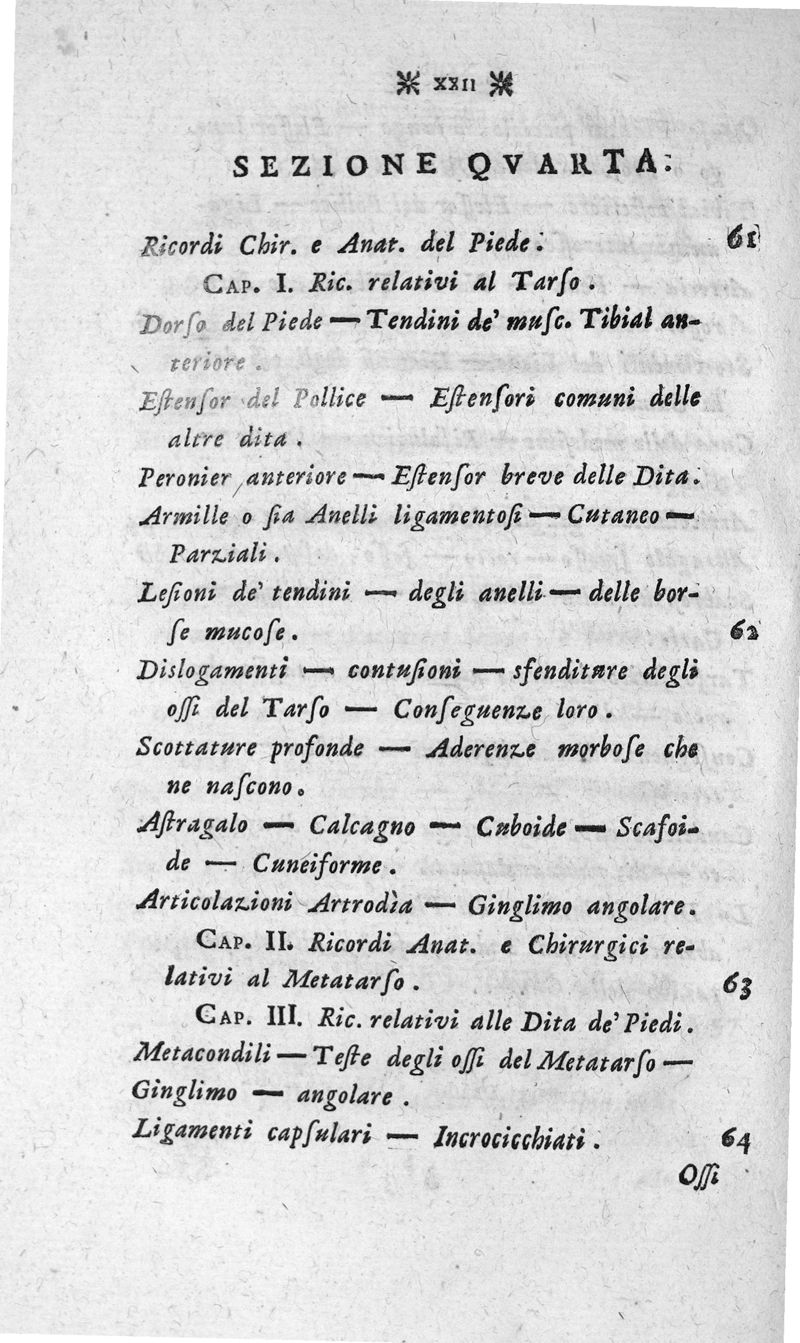 ※ XXII ※
SEZIONE QVARTA.
Ricordi Chir. e Anat. del Piede. 61
CAP. I. Ric. relativi al Tarſo.
Dorſo del Piede — Tendini de' muſc. Tibial an-
teriore.
Eſtenſor del Pollice — Eſtenſori comuni delle
altre dita.
Peronier anteriore — Eſtenſor breve delle Dita.
Armille o ſia Anelli ligamentoſi — Cutaneo —
Parziali.
Leſioni de' tendini — degli anelli — delle bor-
ſe mucoſe. 62
Dislogamenti — contuſioni — sfenditure degli
oſſi del Tarſo — Conſeguenze loro.
Scottature profonde — Aderenze morboſe che
ne naſcono.
Aſtragalo — Calcagno — Cuboide — Scafoi-
de — Cuneiforme.
Articolazioni Artrodìa — Ginglimo angolare.
CAP. II. Ricordi Anat. e Chirurgici re-
lativi al Metatarſo. 63
CAP. III. Ric. relativi alle Dita de' Piedi.
Metacondili — Teſte degli oſſi del Metatarſo —
Ginglimo — angolare.
Ligamenti capſulari — Incrocicchiati. 64
Oſſi